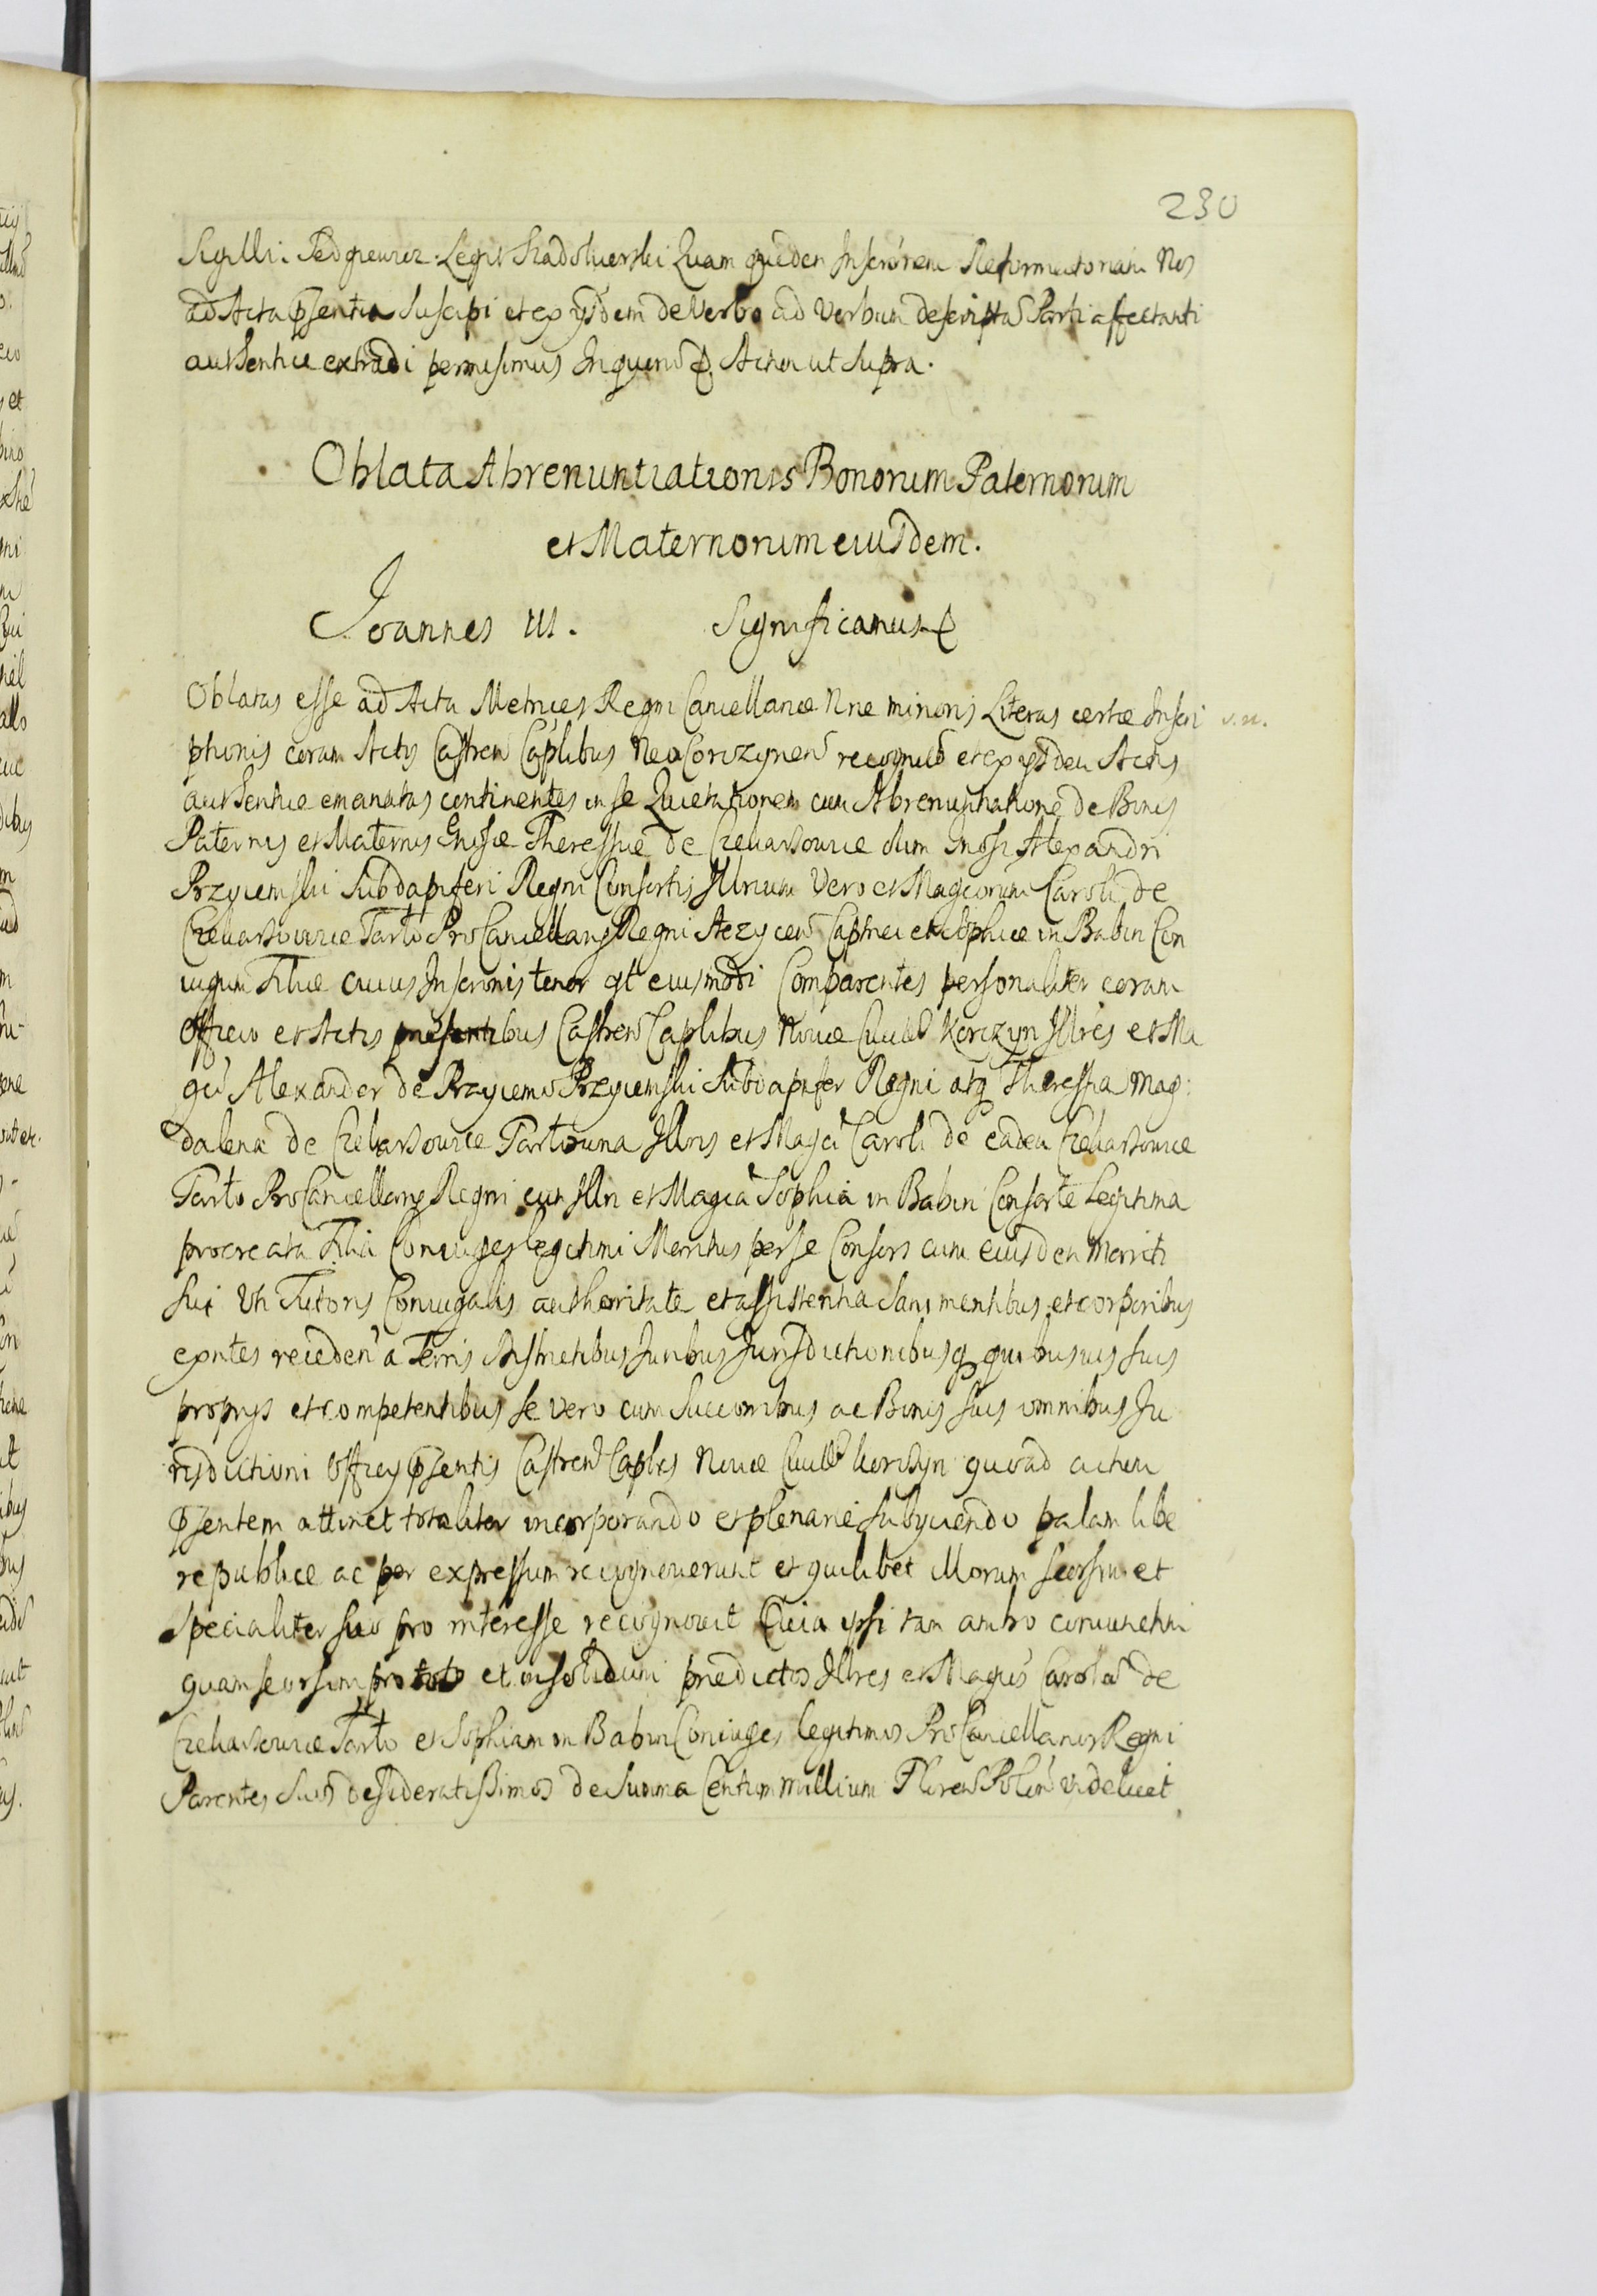 230
Sigilli. Legit Quam quidem Inscr̃onem Reformatoriam Nos
ad Acta p̃sentia suscipi et ex ysdem de Verbo ad Verbum descriptã Parti affectanti
authentice extradi permisimus In quorũ Actum ut supra.
Oblata Abrenuntiationis Bonorum Paternorum
et Maternorum eiusdem.
Joannes III. Significamus
Oblatas esse ad Acta Metrices Regni Cancellariæ Nræ minoris Literas certæ Inscri
ptionis coram Actis Castren Caplibus NeoCorczynen recognitã et ex ysdem Actis
authentice emanatas continentes in se Quietationem cum Abrenuntiatione de Bonis
Paternis et Maternis Gnosæ Theressiæ de Czekarzowice olim Gnosi Alexandri
Przyiemski Subdapiferi Regni Consortis Illrium Vero et Magcorum Caroli de
Czekarzowice Tarło ProCancellarÿ Regni Capitanei et Sophiæ in Babin Con
iugum Filiæ cuius Inscr̃onis tenor ẽt eiusmodi Comparentes personaliter coram
Officio et Actis præsentibus Castren Caplibus Novæ Civitatis Korczyn Illres et Ma
gci Alexander de Przyiema Przyiemski Subdapifer Regni atq Theressia Mag:
dalena de Czekarzowice Tarłowna Illris et Magci Caroli de eadem Czekarzowice
Tarło ProCancellarÿ Regni cum Illri et Magca Sophia in Babin Consorte Legitima
procreata Filia Coniuges legitimi Maritus per se Consors cum eiusdem Mariti
sui Uti Tutoris Coniugalis authoritate et assistentia sani mentibus et corporibus
exntes receden̄ a Terris Districtibus Juribus Jurisdictionibusq quibusuis suis
proprys et competentibus se vero cum Succoribus ac Bonis suis omnibus Ju
risdictioni Officÿ p̃sentis Castren Caplis Novæ Civittis Korczyn quoad actum
p̃sentem attinet totaliter incorporando et plenarie subyciendo palam libe
re publice ac per expressum recognoverunt et quilibet illorum seorsim et
specialiter suo pro interesse recognovit Quia ipsi tam ambo coniunctim
quam seorsim pro toto et in solidum prædictos Illres et Magcos Carolũ de
Czekarzowice Tarło et Sophiam in Babin Coniuges legitimos ProCancellarios Regni
Parentes suos desideratissimos de Summa Centum millium Floren̄ Polon̄ videlicet